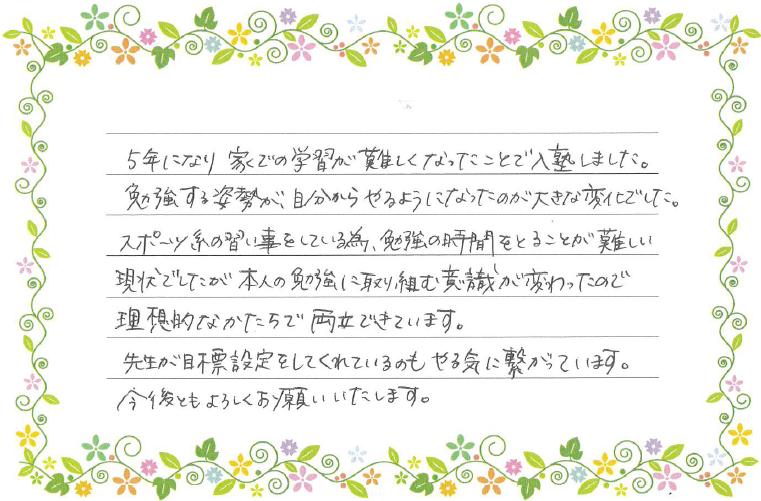 5年になり 家での学習が難しくなったことで入塾しました。
勉強する姿勢が、自分からやるようになったのが大きな変化でした。
スポーツ系の習い事をしている為、勉強の時間をとることが難しい
現状でしたが 本人の勉強に取り組む意識が変わったので
理想的なかたちで 両立できています。
先生が目標設定をしてくれているのも やる気に繋がっています。
今後ともよろしくお願いいたします。